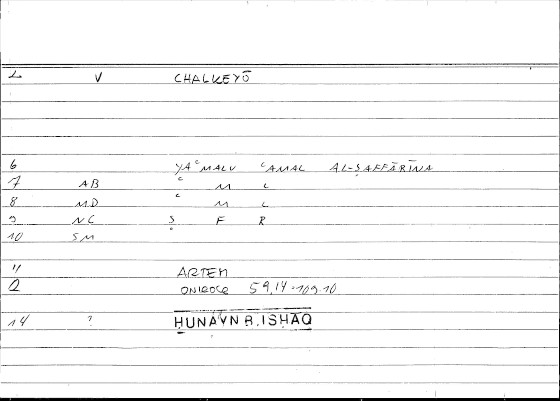 2 V CHALKEYŌ
6 YAʿMALU ʿAMAL AL-ṢAFFĀRĪNA
7 AB ʿ M L
8 MD ʿ M L
9 NC Ṣ F R
10 SM
11 ARTEM
12 ONIROCR 59,14-109.10
14 ? ḤUNAYN B. ISḤĀQ